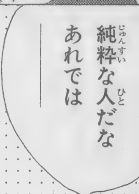 純粋な人だな
あれでは